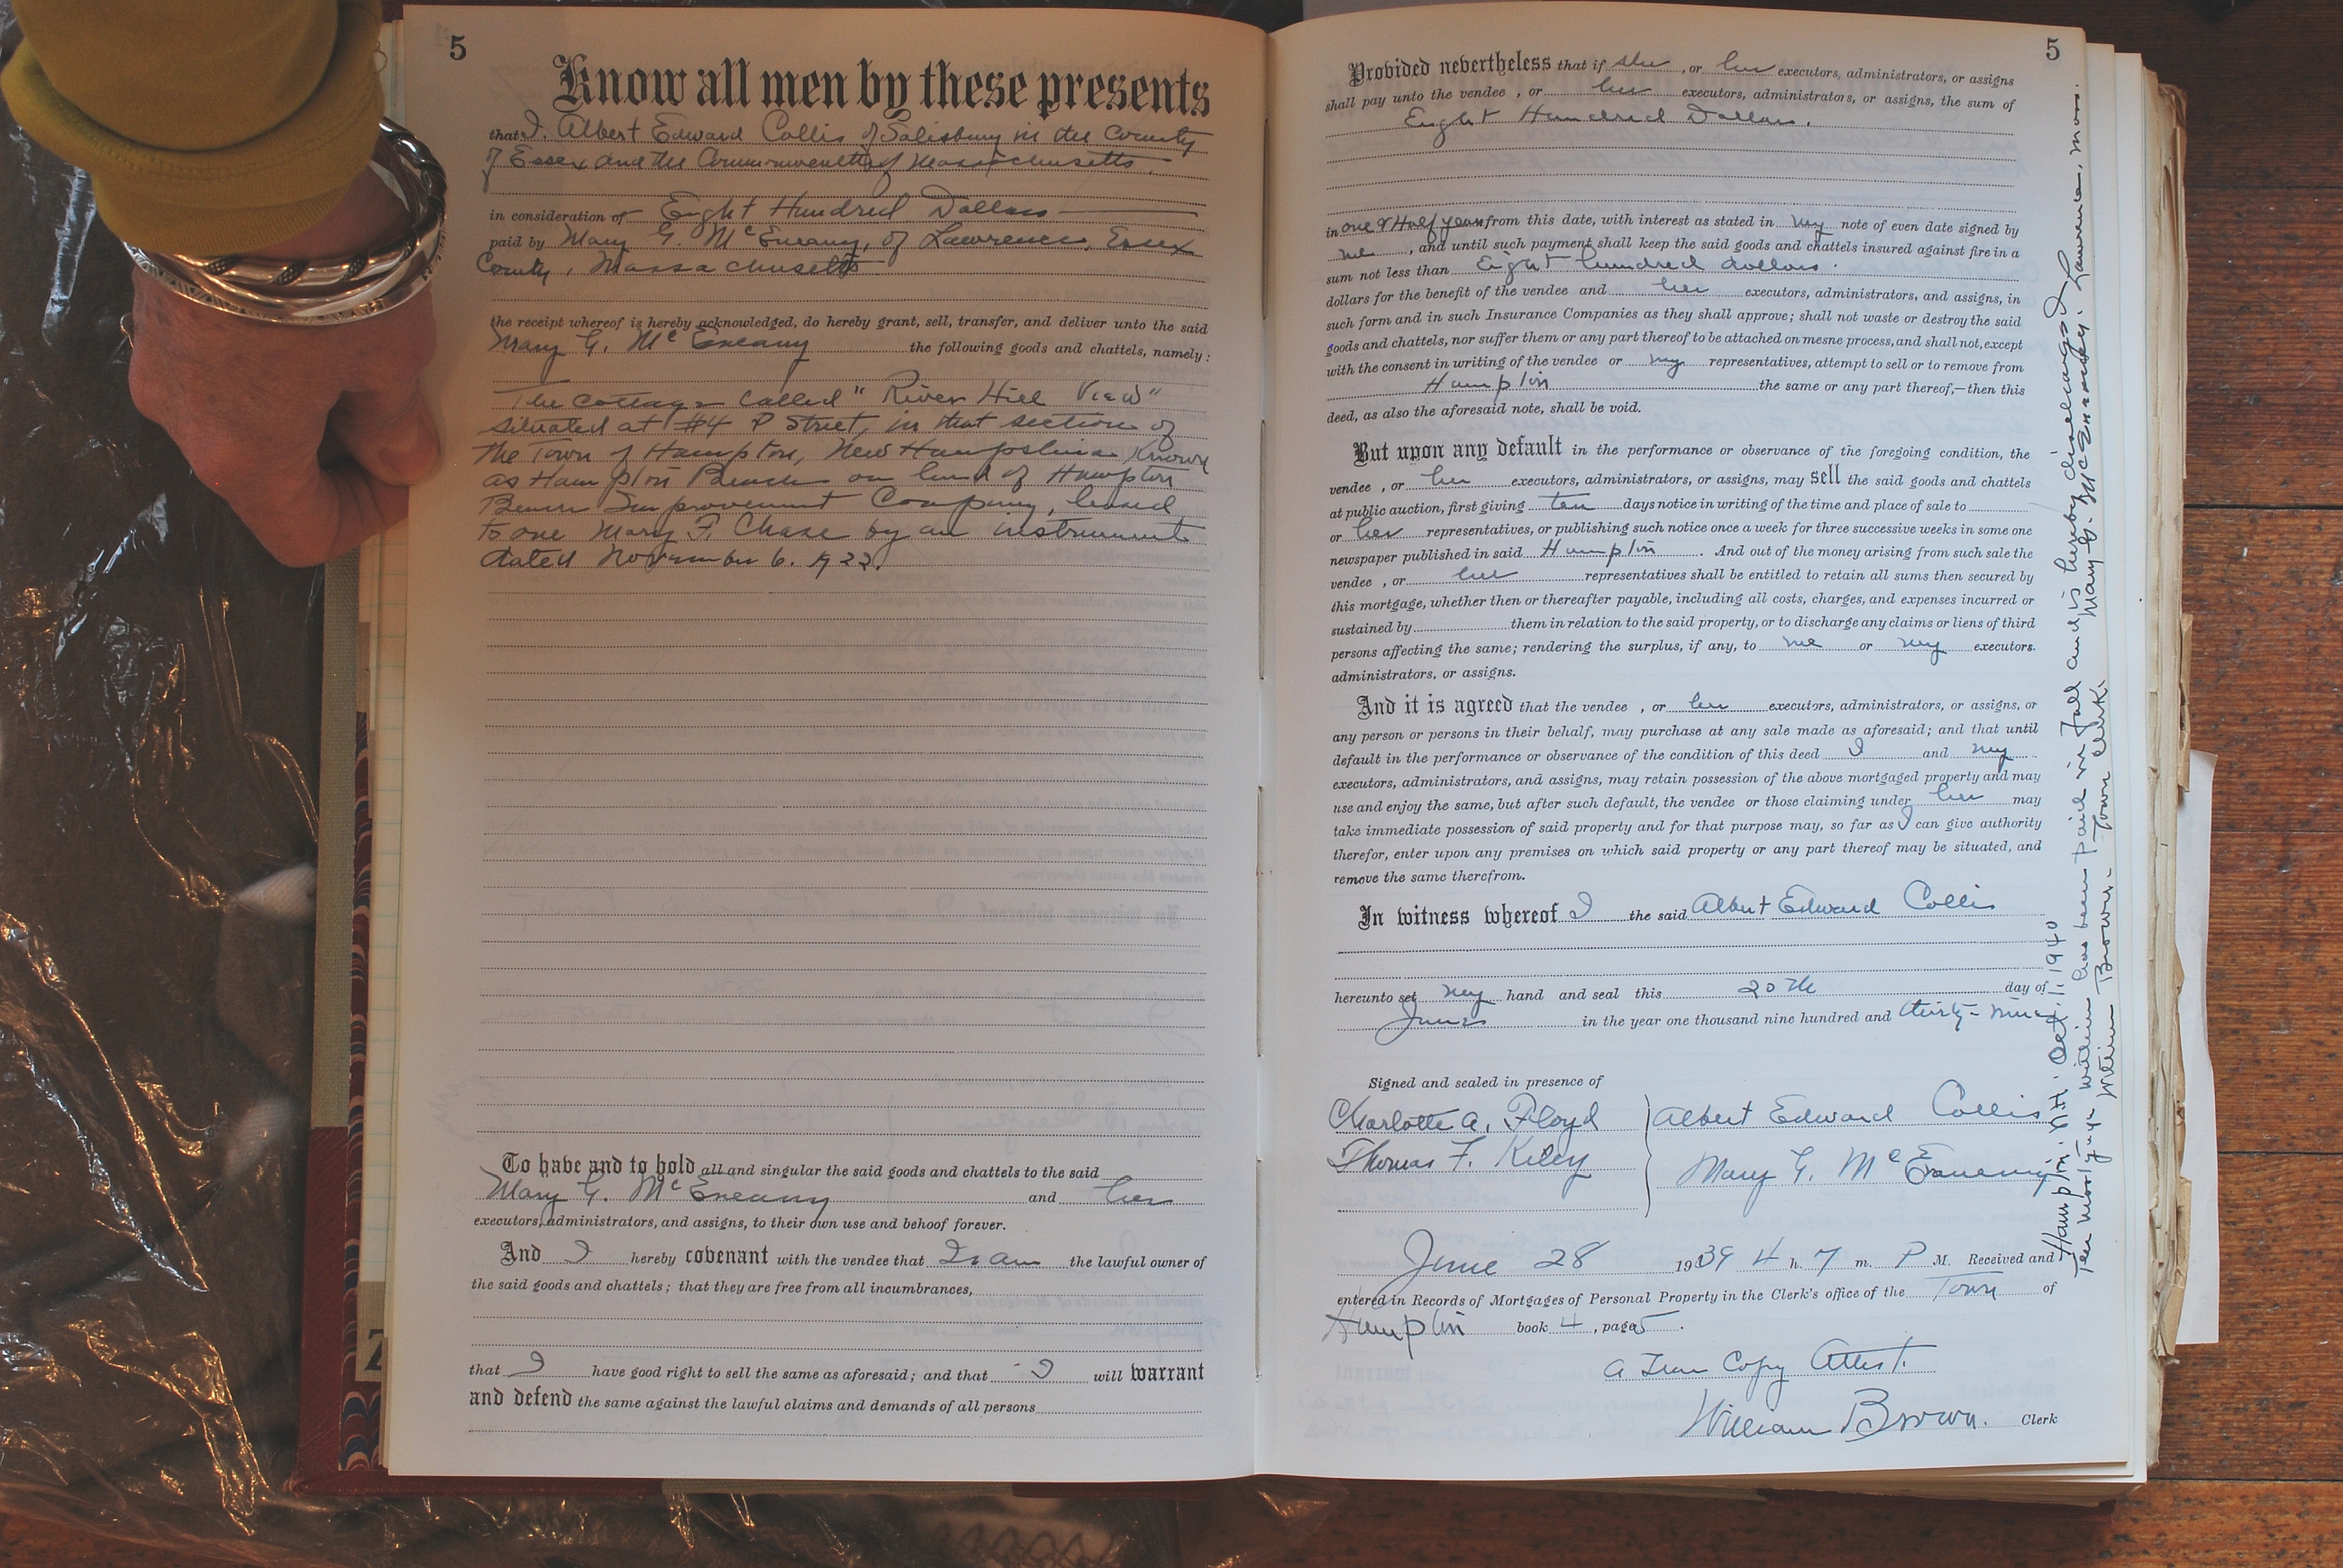 5
Know all men by these presents
that I, Albert Edward Collis of Salisbury in the County
of Essex and the Commonwealth of Massachusetts.
in consideration of Eight Hundred Dollars
paid by Mary G. McEneany, of Lawrence, Essex
County, Massachusetts
the receipt whereof is hereby acknowledged, do hereby grant, sell, transfer, and deliver unto the said
Mary G. McEneany the following goods and chattels, namely:
The Cottage called "River Hill View"
situated at #4 P Street, in that section of
the Town of Hampton, New Hampshire known
as Hampton Beach on land of Hampton
Beach Improvement Company, leased
to one Mary F. Chase by an instrument
dated November 6, 1922.
To have and to hold all and singular the said goods and chattels to the said
Mary G. McEneany and her
executors, administrators, and assigns, to their own use and behoof forever.
And I hereby covenant with the vendee that I am the lawful owner of
the said goods and chattels; that they are free from all incumbrances,
that I have good right to sell the same as aforesaid; and that I will warrant
and defend the same against the lawful claims and demands of all persons
5
Provided nevertheless that if she, or her executors, administrators, or assigns
shall pay unto the vendee, or her executors, administrators, or assigns, the sum of
Eight Hundred Dollars.
in one & Half years from this date, with interest as stated in my note of even date signed by
me, and until such payment shall keep the said goods and chattels insured against fire in a
sum not less than Eight hundred dollars.
dollars for the benefit of the vendee and her executors, administrators, and assigns, in
such form and in such Insurance Companies as they shall approve; shall not waste or destroy the said
goods and chattels, nor suffer them or any part thereof to be attached on mesne process, and shall not, except
with the consent in writing of the vendee or my representatives, attempt to sell or to remove from
Hampton the same or any part thereof,—then this
deed, as also the aforesaid note, shall be void.
But upon any default in the performance or observance of the foregoing condition, the
vendee, or her executors, administrators, or assigns, may sell the said goods and chattels
at public auction, first giving ten days notice in writing of the time and place of sale to
or her representatives, or publishing such notice once a week for three successive weeks in some one
newspaper published in said Hampton. And out of the money arising from such sale the
vendee, or her representatives shall be entitled to retain all sums then secured by
this mortgage, whether then or thereafter payable, including all costs, charges, and expenses incurred or
sustained by them in relation to the said property, or to discharge any claims or liens of third
persons affecting the same; rendering the surplus, if any, to me or my executors.
administrators, or assigns.
And it is agreed that the vendee, or her executors, administrators, or assigns, or
any person or persons in their behalf, may purchase at any sale made as aforesaid; and that until
default in the performance or observance of the condition of this deed I and my
executors, administrators, and assigns, may retain possession of the above mortgaged property and may
use and enjoy the same, but after such default, the vendee or those claiming under her may
take immediate possession of said property and for that purpose may, so far as I can give authority
therefor, enter upon any premises on which said property or any part thereof may be situated, and
remove the same therefrom.
In witness whereof I the said Albert Edward Collis
hereunto set my hand and seal this 20th day of
June in the year one thousand nine hundred and thirty-nine
Signed and sealed in presence of
Charlotte A. Floyd Albert Edward Collis
Thomas F. Kiley Mary G. McEneany
June 28 1939 4 h. 7 m. P M. Received and
entered in Records of Mortgages of Personal Property in the Clerk's office of the Town of
Hampton book 4, page 5.
A True Copy Attest.
William Brown. Clerk
Hampton. N.H. Oct. 1. 1940
The mortgage within has been paid in full and is hereby discharged
Mary G. McEneaney. Lawrence, Mass.
William Brown - Town Clerk.